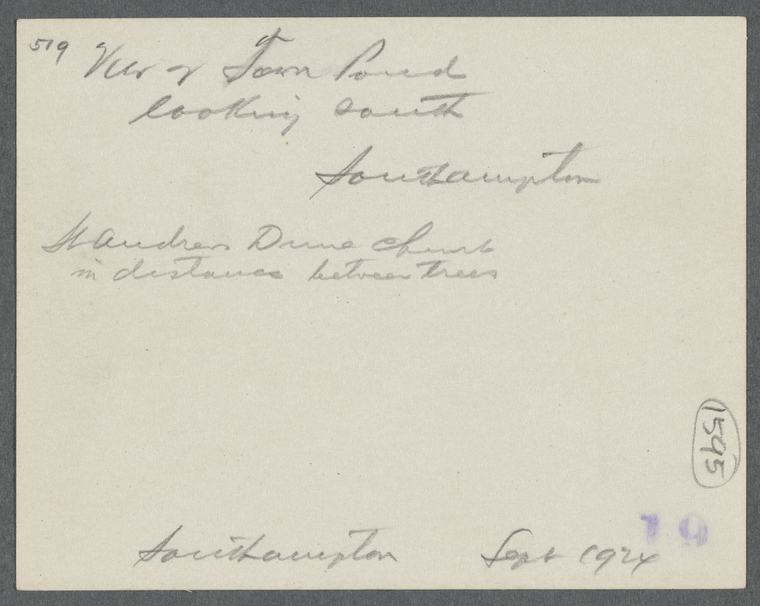 519 View of Town Pond
looking south
Southampton
St Andrews Dune Church
in distance between trees
1595
19
Southampton Sept 1924